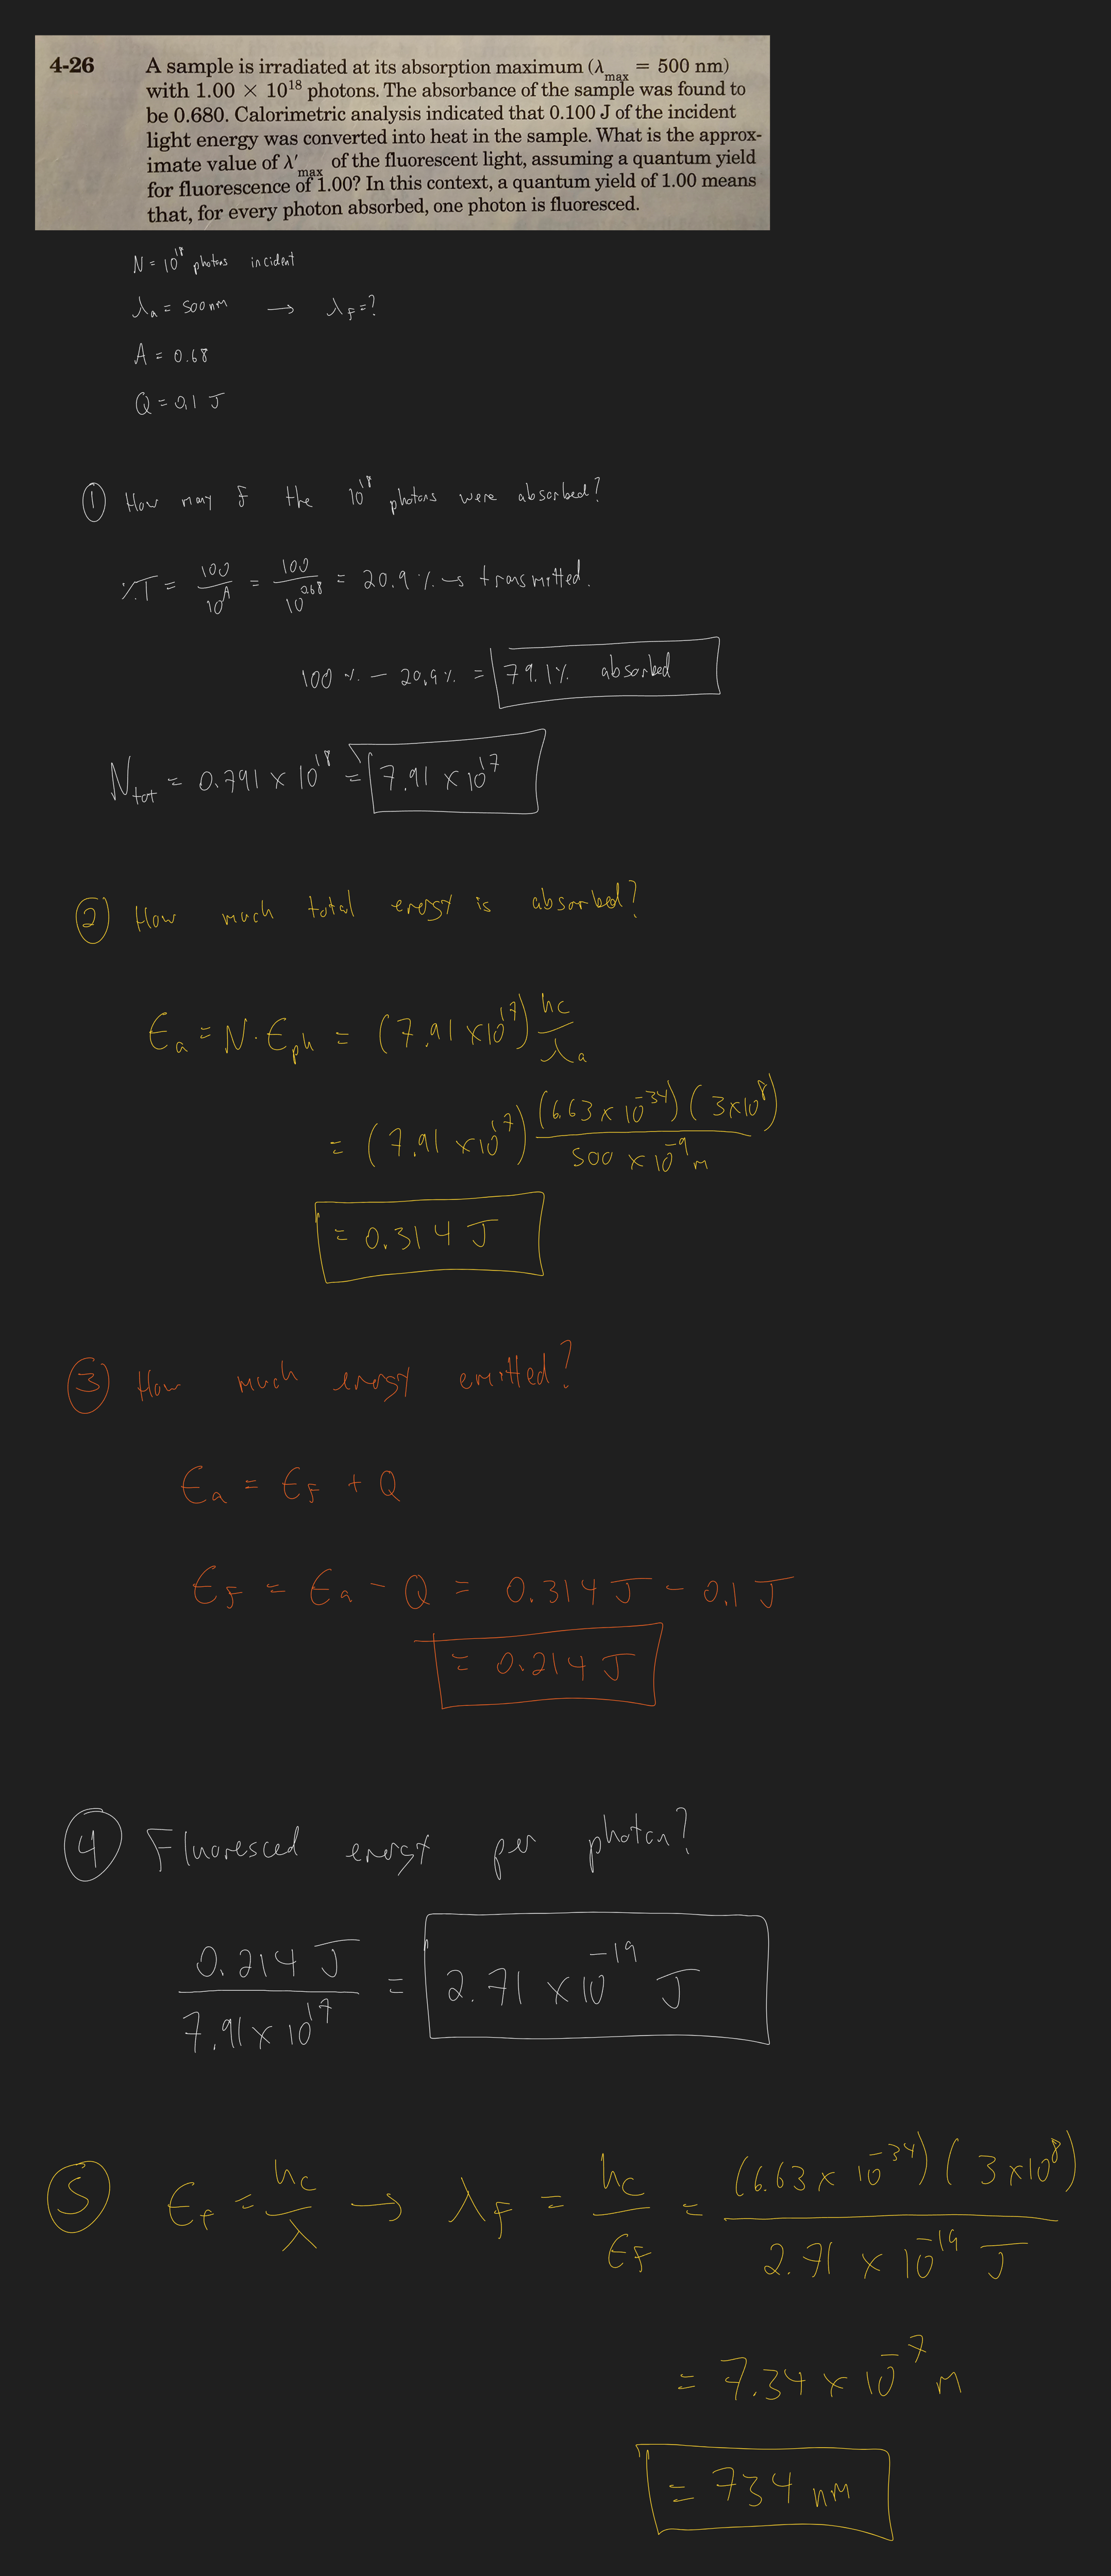 4-26 A sample is irradiated at its absorption maximum (λmax = 500 nm)
with 1.00 × 10¹⁸ photons. The absorbance of the sample was found to
be 0.680. Calorimetric analysis indicated that 0.100 J of the incident
light energy was converted into heat in the sample. What is the approx-
imate value of λ′max of the fluorescent light, assuming a quantum yield
for fluorescence of 1.00? In this context, a quantum yield of 1.00 means
that, for every photon absorbed, one photon is fluoresced.
N = 10¹⁸ photons incident
λa = 500 nm → λF = ?
A = 0.68
Q = 0.1 J
① How many of the 10¹⁸ photons were absorbed?
%T = 100/10^A = 100/10^0.68 = 20.9 % → transmitted.
100 % − 20.9 % = 79.1 % absorbed
Ntot = 0.791 × 10¹⁸ = 7.91 × 10¹⁷
② How much total energy is absorbed?
Ea = N · Eph = (7.91 × 10¹⁷) hc/λa
= (7.91 × 10¹⁷) (6.63 × 10⁻³⁴)(3 × 10⁸)/500 × 10⁻⁹ m
= 0.314 J
③ How much energy emitted?
Ea = EF + Q
EF = Ea − Q = 0.314 J − 0.1 J
= 0.214 J
④ Fluoresced energy per photon?
0.214 J/7.91 × 10¹⁷ = 2.71 × 10⁻¹⁹ J
⑤ Ef = hc/λ → λF = hc/EF = (6.63 × 10⁻³⁴)(3 × 10⁸)/2.71 × 10⁻¹⁹ J
= 7.34 × 10⁻⁷ m
= 734 nm